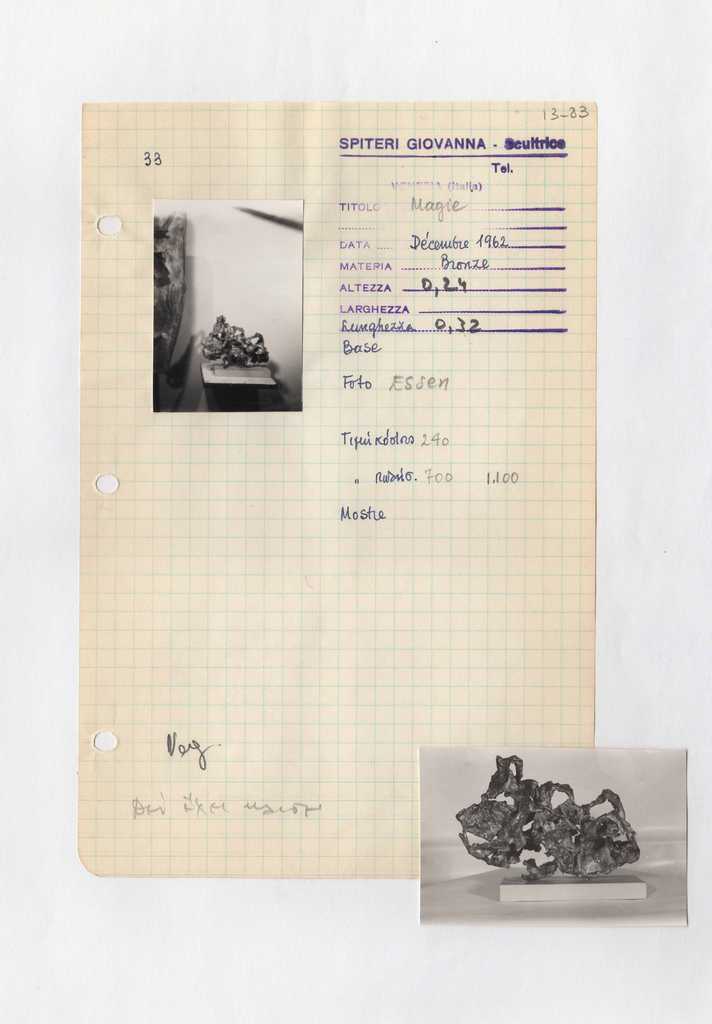 13-83
33
SPITERI GIOVANNA - Scultrice
Tel.
VENEZIA (Italia)
TITOLO Magie
DATA Décembre 1962
MATERIA Bronze
ALTEZZA 0,24
LARGHEZZA
Lunghezza 0,32
Base
Foto Essen
Τιμή κόστος 240
" 700 1.100
Mostre
Δεν έχει